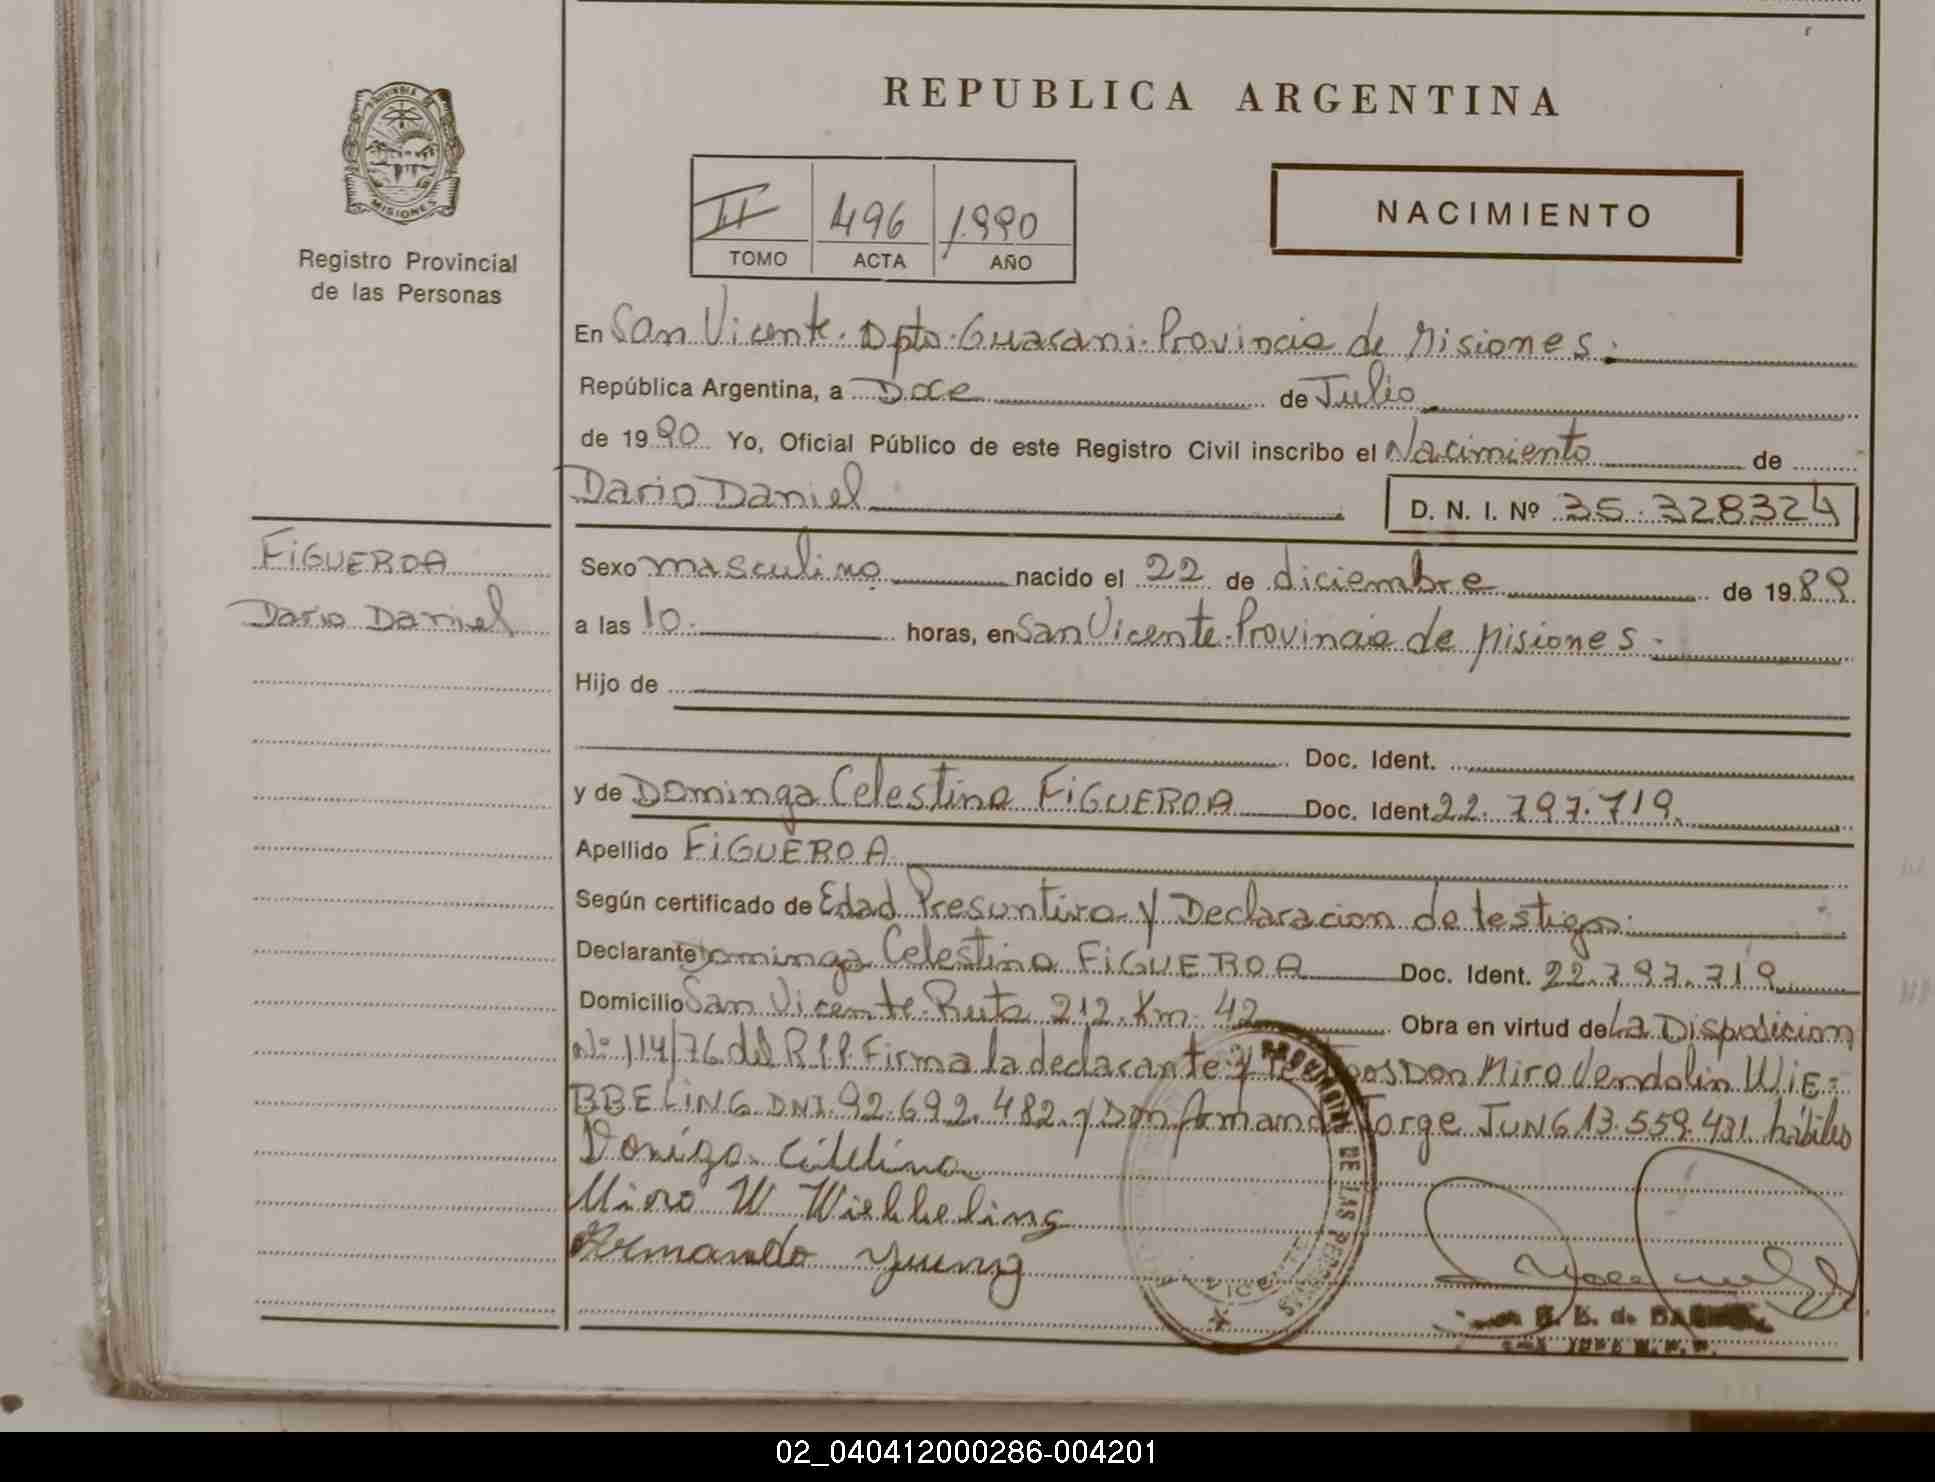 REPUBLICA ARGENTINA
PROVINCIA DE
MISIONES
Registro Provincial
de las Personas
II 496 1990
TOMO ACTA AÑO
NACIMIENTO
En San Vicente. Dpto. Guarani. Provincia de Misiones.
República Argentina, a Doce de Julio
de 1990 Yo, Oficial Público de este Registro Civil inscribo el Nacimiento de
Dario Daniel D. N. I. Nº 35.328324
FIGUEROA
Dario Daniel
Sexo masculino nacido el 22 de diciembre de 1989
a las 10. horas, en San Vicente. Provincia de Misiones.
Hijo de
Doc. Ident.
y de Dominga Celestina FIGUEROA Doc. Ident. 22.797.719.
Apellido FIGUEROA
Según certificado de Edad Presuntiva y Declaracion de testigos.
Declarante Dominga Celestina FIGUEROA Doc. Ident. 22.797.719
Domicilio San Vicente. Ruta 212. Km. 42 Obra en virtud de La Disposicion
Nº 114/76 del R.P.P. Firma la declarante y Don Miro Vendolin WIE=
BBELING DNI. 92.692.482. y Don Armando Jorge JUNG 13.559.431 hábiles
Miro W Wiebbeling
Armando Yung
PROVINCIAL DE LAS PERSONAS
02_040412000286-004201